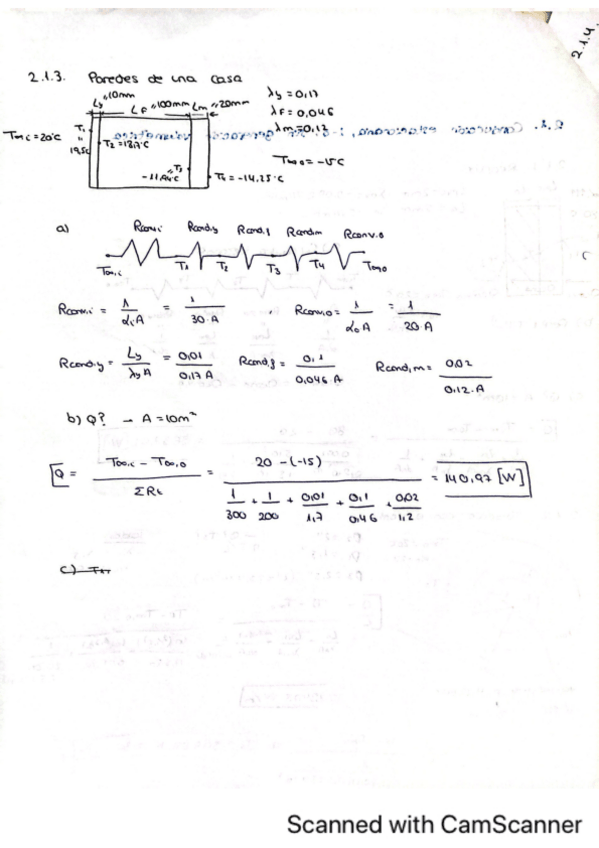 2.1.4.
2.1.3. Paredes de una casa
Ly = 10mm LF = 100mm Lm = 20mm
λy = 0,17
λF = 0,046
λm = 0,12
T∞,i = 20ºC T1 = 19,5C T2 = 18,7ºC
T∞,o = -15C
T4 = -14,25ºC
a) Rconv,i Rcond,y Rcond,f Rcond,m Rconv,o
T∞,i T1 T2 T3 T4 T∞,o
Rconv,i = 1/(αi A) = 1/(30·A) Rconv,o = 1/(αo A) = 1/(20·A)
Rcond,y = Ly/(λy A) = 0,01/(0,17 A) Rcond,f = 0,1/(0,046 A) Rcond,m = 0,02/(0,12·A)
b) Q? → A = 10m²
Q = (T∞,i - T∞,o)/ΣRt = (20 - (-15))/(1/300 + 1/200 + 0,01/1,7 + 0,1/0,46 + 0,02/1,2) = 140,97 [W]
Scanned with CamScanner